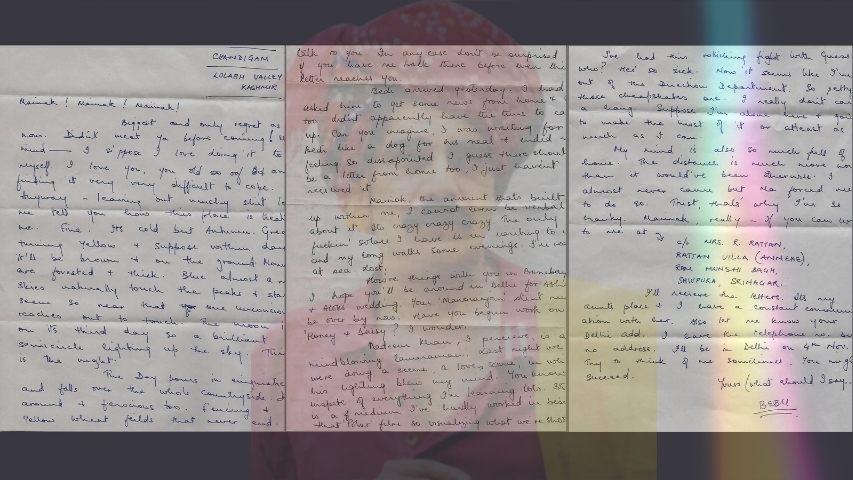 CHANDIGAM
LOLABH VALLEY
KASHMIR
Mainak! Mainak! Mainak!
Biggest and only regret as
now. Didn't meet ya before coming!
mind — I s'ppose I love doing it to
myself. I love you, you old
finding it very very difficult to cope.
Anyway - leaving out
me tell you how this place is
me. Fine. Its cold but Autumn.
turning Yellow & suppose within
it'll be brown & on the ground
are forested & thick. Blue almost
skies naturally touch the peaks &
seem so near that one
reaches out to touch. The moon
on its third day so a brilliant
semicircle lighting up the sky.
is the night.
The Day
and falls over the whole countryside.
around & ferocious too.
Yellow wheat fields that never end.
talk to you. In any case don't be surprised
if you have me back there before even the
letter reaches you.
Bedi arrived yesterday. I had
asked him to get some news from home &
too didn't apparently have the time to
up. Can you imagine, I was waiting for
Bedi like a dog for his meat & ended
feeling so disappointed. I guess there should
be a letter from home too, I just haven't
received it.
Mainak, the amount that's built
up within me, I cannot even be verbal
about it. Its crazy crazy crazy. The only
fuckin' solace I have is in writing to
and my long walks some evenings. I'm
at sea lost.
How're things with you in Bombay
I hope you'll be around in Delhi for
& wedding. Your
be over by now. Have you begun work on
'Honey & Daisy'? I wonder.
Nadeem Khan, I perceive, is a
mindblowing cameraman. Last night we
were doing a scene, a love scene in
his lighting blew my mind. You know
inspite of everything I'm learning lots. 35
is a medium I've hardly worked in
that Polar film so visualizing what we're
I've had this fight with
who? He's so sick. Now it seems like I'm
out of the Direction Department. So petty
these cheapskates are. I really don't
a hang. Suppose I'm alone here &
to make the most of it or atleast as
much as I can.
My mind is also so much full of
home. The distance is much more
than it would've been otherwise. I
almost never came but Ma forced me
to do so. Trust, that's why I'm so
cranky. Mainak, really - if you can
to me at
c/o MRS. R. RATTAN,
RATTAN VILLA (ANNEXE),
RAM MUNSHI BAGH,
SHIVPURA, SRINAGAR.
I'll receive the letters. Its my
aunts place & I have a constant
ation with her. Also let me know your
Delhi add. I have the telephone no. but
no address. I'll be in Delhi on 4th Nov.
Try to think of me sometimes. You might
succeed.
Yours (what should I say..
BEBU